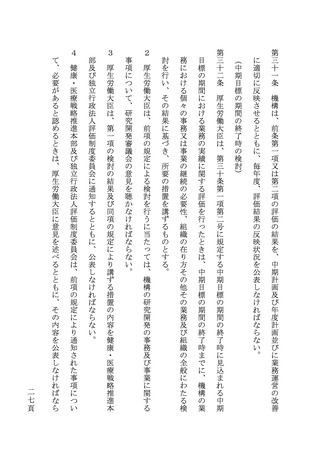 第三十一条　機構は、前条第一項又は第二項の評価の結果を、中期計画及び年度計画並びに業務運営の改善
に適切に反映させるとともに、毎年度、評価結果の反映状況を公表しなければならない。
（中期目標の期間の終了時の検討）
第三十二条　厚生労働大臣は、第三十条第一項第二号に規定する中期目標の期間の終了時に見込まれる中期
目標の期間における業務の実績に関する評価を行ったときは、中期目標の期間の終了時までに、機構の業
務における個々の事務又は事業の継続の必要性、組織の在り方その他その業務及び組織の全般にわたる検
討を行い、その結果に基づき、所要の措置を講ずるものとする。
２　厚生労働大臣は、前項の規定による検討を行うに当たっては、機構の研究開発の事務及び事業に関する
事項について、研究開発審議会の意見を聴かなければならない。
３　厚生労働大臣は、第一項の検討の結果及び同項の規定により講ずる措置の内容を健康・医療戦略推進本
部及び独立行政法人評価制度委員会に通知するとともに、公表しなければならない。
４　健康・医療戦略推進本部及び独立行政法人評価制度委員会は、前項の規定により通知された事項につい
て、必要があると認めるときは、厚生労働大臣に意見を述べるとともに、その内容を公表しなければなら
二七頁